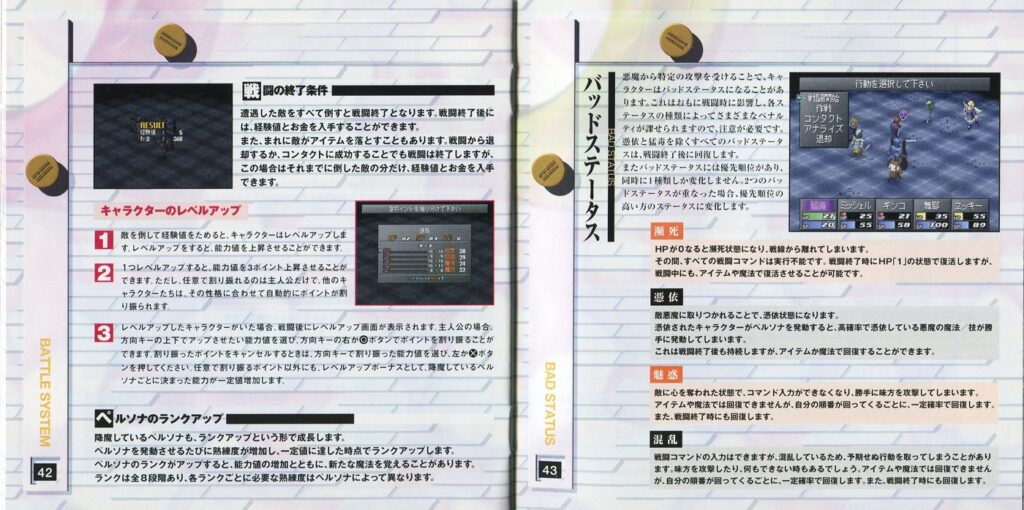 戦闘の終了条件
遭遇した敵をすべて倒すと戦闘終了となります。戦闘終了後に
は、経験値とお金を入手することができます。
また、まれに敵がアイテムを落とすこともあります。戦闘から退
却するか、コンタクトに成功することでも戦闘は終了しますが、
この場合はそれまでに倒した敵の分だけ、経験値とお金を入手
できます。
RESULT
経験値 : 5
お金 : 360
キャラクターのレベルアップ
1
敵を倒して経験値をためると、キャラクターはレベルアップしま
す。レベルアップをすると、能力値を上昇させることができます。
2
1つレベルアップすると、能力値を3ポイント上昇させることが
できます。ただし、任意で割り振れるのは主人公だけで、他のキ
ャラクターたちは、その性格に合わせて自動的にポイントが割
り振られます。
3ポイントを振り分けて下さい
3
レベルアップしたキャラクターがいた場合、戦闘後にレベルアップ画面が表示されます。主人公の場合、
方向キーの上下でアップさせたい能力値を選び、方向キーの右か○ボタンでポイントを割り振ることが
できます。割り振ったポイントをキャンセルするときは、方向キーで割り振った能力値を選び、左か×ボタ
ンを押してください。任意で割り振るポイント以外にも、レベルアップボーナスとして、降魔しているペル
ソナごとに決まった能力が一定値増加します。
ペルソナのランクアップ
降魔しているペルソナも、ランクアップという形で成長します。
ペルソナを発動させるたびに熟練度が増加し、一定値に達した時点でランクアップします。
ペルソナのランクがアップすると、能力値の増加とともに、新たな魔法を覚えることがあります。
ランクは全8段階あり、各ランクごとに必要な熟練度はペルソナによって異なります。
BATTLE SYSTEM
42
バッドステータス
BAD STATUS
悪魔から特定の攻撃を受けることで、キャ
ラクターはバッドステータスになることがあ
ります。これはおもに戦闘時に影響し、各ス
テータスの種類によってさまざまなペナル
ティが課せられますので、注意が必要です。
憑依と猛毒を除くすべてのバッドステータ
スは、戦闘終了後に回復します。
またバッドステータスには優先順位があり、
同時に1種類しか変化しません。2つのバッ
ドステータスが重なった場合、優先順位の
高い方のステータスに変化します。
行動を選択して下さい
戦闘開始
作戦
コンタクト
アナライズ
退却
ミッシェル
ギンコ
舞耶
ユッキー
瀕死
HPが0なると瀕死状態になり、戦線から離れてしまいます。
その間、すべての戦闘コマンドは実行不能です。戦闘終了時にHP「1」の状態で復活しますが、
戦闘中にも、アイテムや魔法で復活させることが可能です。
憑依
敵悪魔に取りつかれることで、憑依状態になります。
憑依されたキャラクターがペルソナを発動すると、高確率で憑依している悪魔の魔法/技が勝
手に発動してしまいます。
これは戦闘終了後も持続しますが、アイテムか魔法で回復することができます。
魅惑
敵に心を奪われた状態で、コマンド入力ができなくなり、勝手に味方を攻撃してしまいます。
アイテムや魔法では回復できませんが、自分の順番が回ってくるごとに、一定確率で回復します。
また、戦闘終了時にも回復します。
混乱
戦闘コマンドの入力はできますが、混乱しているため、予期せぬ行動を取ってしまうことがあり
ます。味方を攻撃したり、何もできない時もあるでしょう。アイテムや魔法では回復できません
が、自分の順番が回ってくるごとに、一定確率で回復します。また、戦闘終了時にも回復します。
BAD STATUS
43